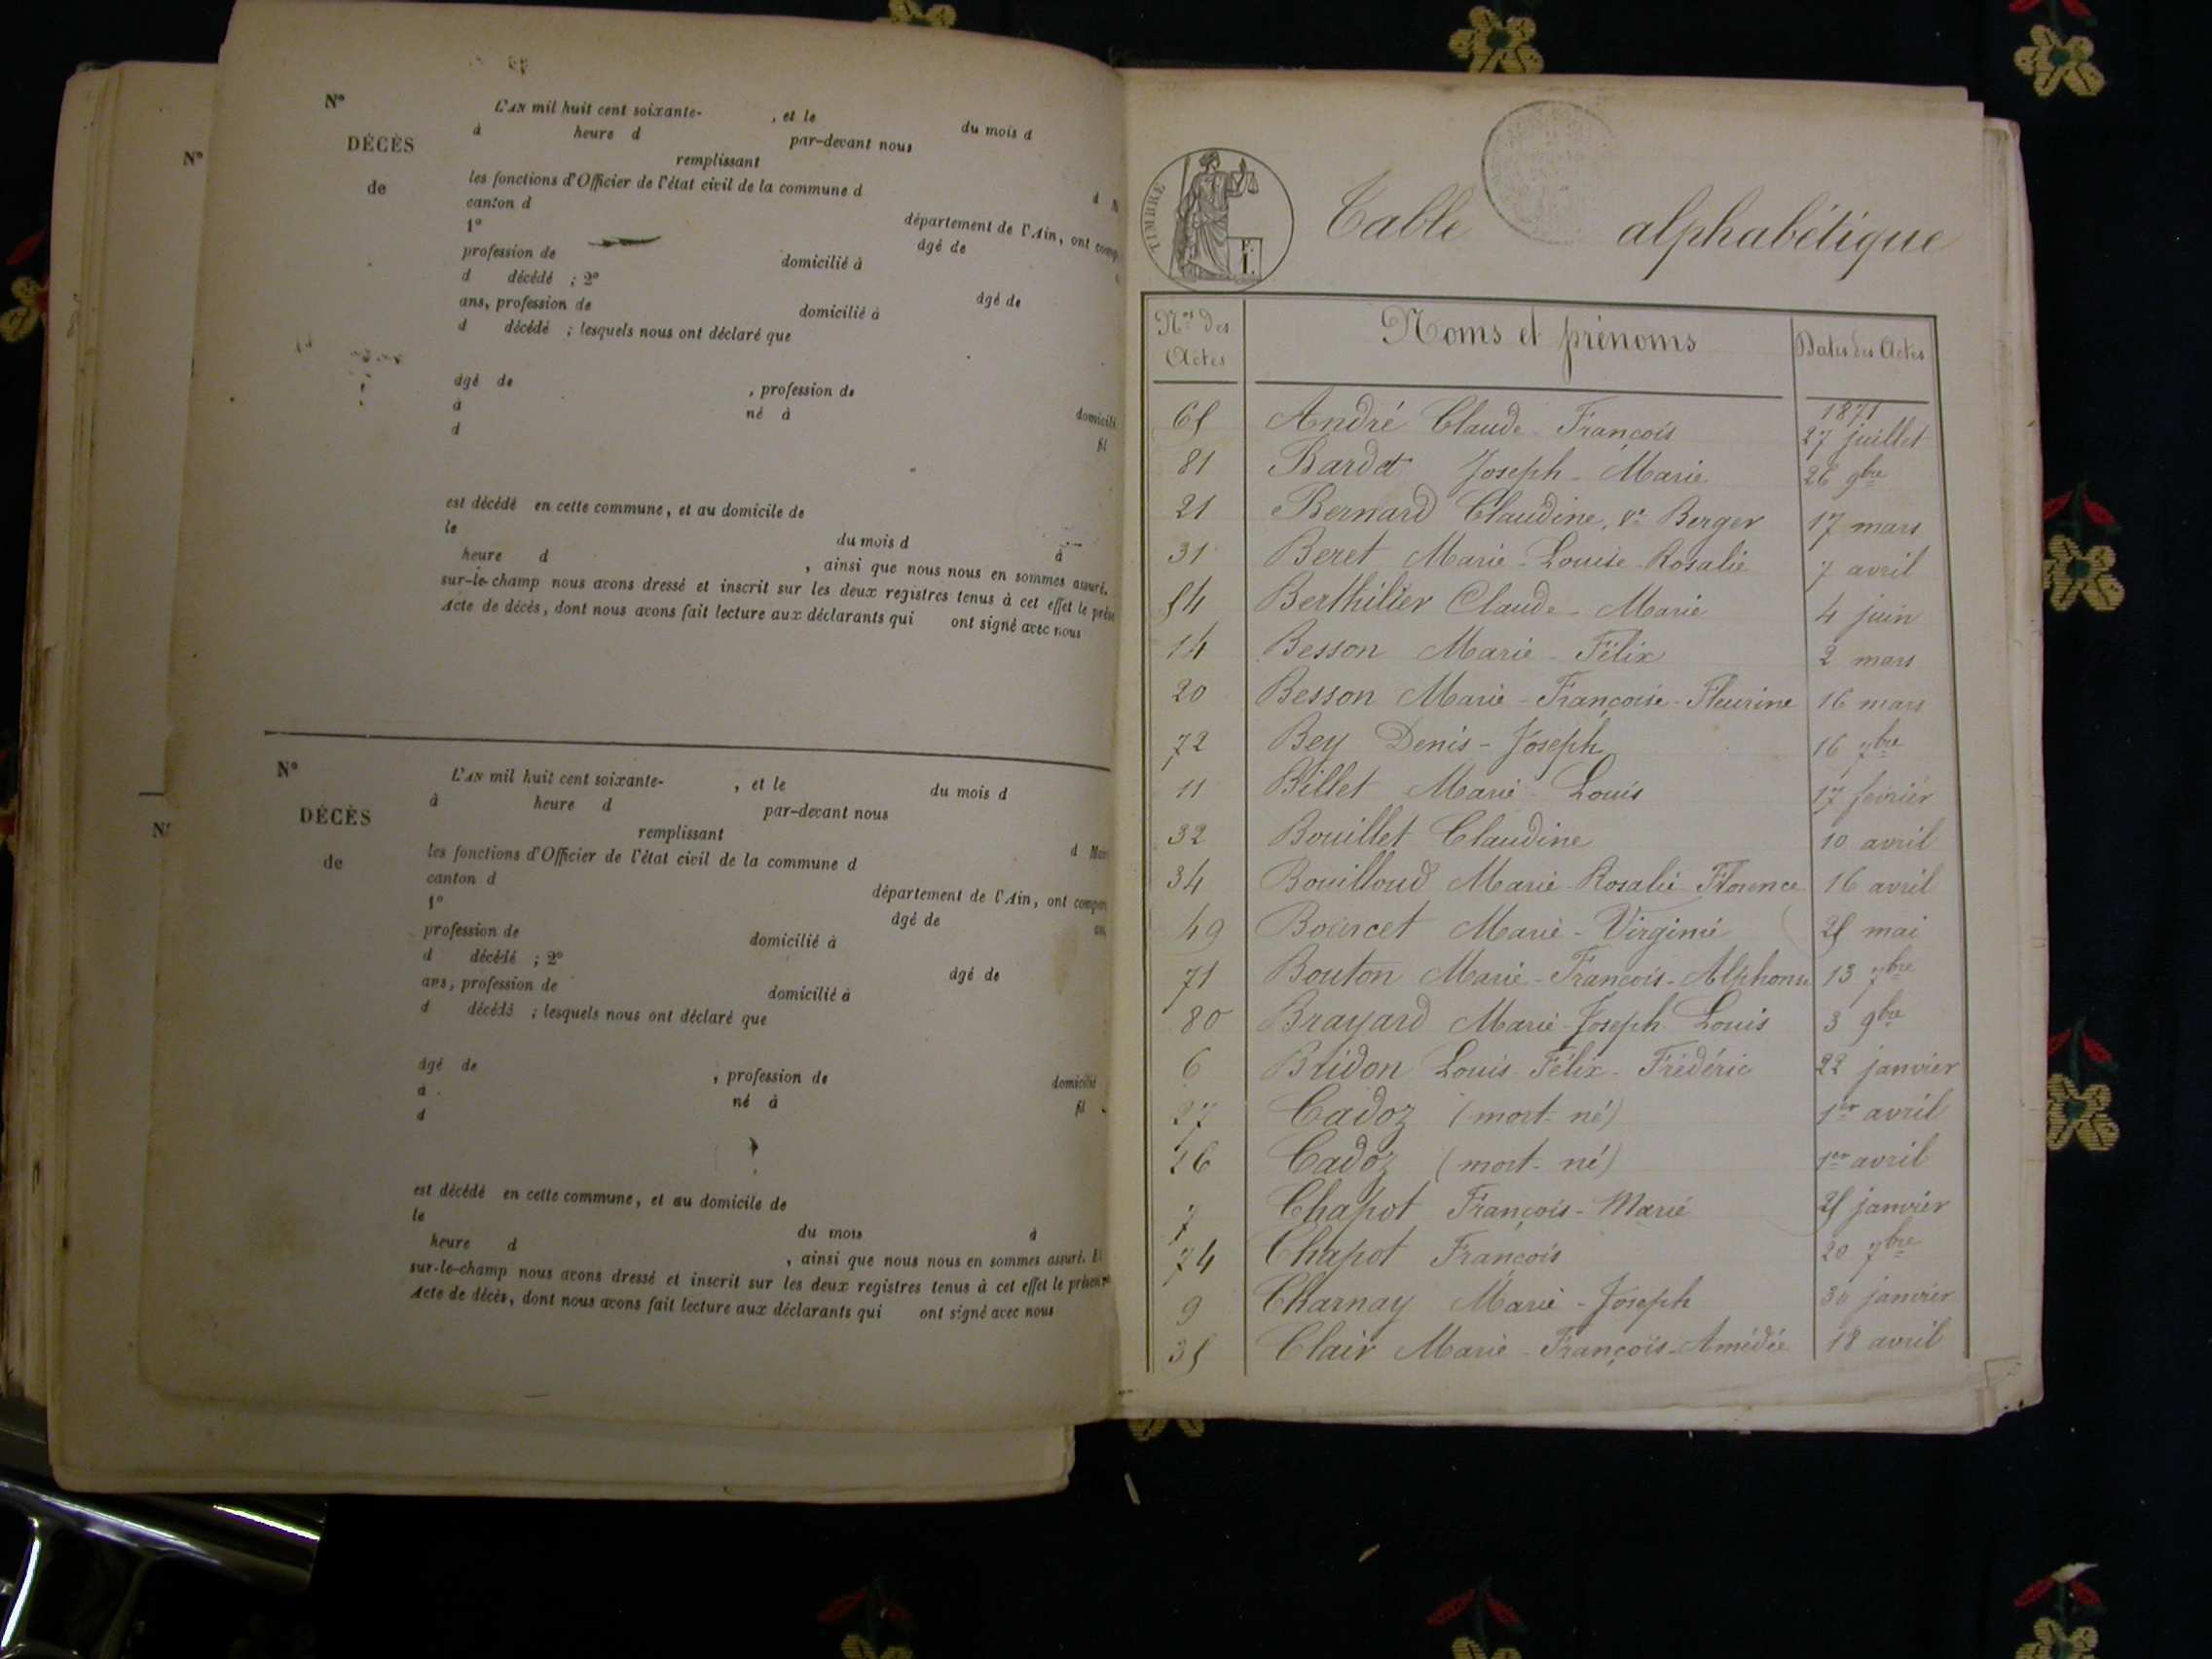 N°
N°
DÉCÈS
de
L'AN mil huit cent soixante- , et le du mois d
à heure d par-devant nous
remplissant
les fonctions d'Officier de l'état civil de la commune d
canton d département de l'Ain, ont
1° âgé de
profession de domicilié à
d décédé ; 2° âgé de
ans, profession de domicilié à
d décédé ; lesquels nous ont déclaré que
âgé de , profession de
à né à
d fil
est décédé en cette commune, et au domicile de
le du mois d à
heure d , ainsi que nous nous en sommes assuré.
sur-le-champ nous avons dressé et inscrit sur les deux registres tenus à cet effet le
Acte de décès, dont nous avons fait lecture aux déclarants qui ont signé avec nous
N°
DÉCÈS
de
L'AN mil huit cent soixante- , et le du mois d
à heure d par-devant nous
remplissant
les fonctions d'Officier de l'état civil de la commune d
canton d département de l'Ain, ont
1° âgé de
profession de domicilié à
d décédé ; 2° âgé de
ans, profession de domicilié à
d décédé ; lesquels nous ont déclaré que
âgé de , profession de domicilié
à né à fil
d
est décédé en cette commune, et au domicile de
le du mois d
heure d , ainsi que nous nous en sommes assuré. Et
sur-le-champ nous avons dressé et inscrit sur les deux registres tenus à cet effet le présent
Acte de décès, dont nous avons fait lecture aux déclarants qui ont signé avec nous
TIMBRE
Table alphabétique
Nos des Actes Noms et prénoms Dates des Actes
1871
65 André Claude-François 27 juillet
81 Bardet Joseph-Marie 26 9bre
21 Bernard Claudine, Ve Berger 17 mars
31 Beret Marie-Louise-Rosalie 7 avril
54 Berthilier Claude-Marie 4 juin
14 Besson Marie-Félix 2 mars
20 Besson Marie-Françoise-Fleurine 16 mars
72 Bey Denis-Joseph 16 7bre
11 Billet Marie-Louis 17 février
32 Bouillet Claudine 10 avril
34 Bouilloud Marie-Rosalie-Florence 16 avril
49 Bourcet Marie-Virginie 25 mai
71 Bouton Marie-François-Alphonse 13 7bre
80 Brayard Marie-Joseph Louis 3 9bre
6 Bridon Louis-Félix-Frédéric 22 janvier
27 Cadoz (mort-né) 1er avril
26 Cadoz (mort-né) 1er avril
7 Chapot François-Marie 25 janvier
74 Chapot François 20 7bre
9 Charnay Marie-Joseph 30 janvier
35 Clair Marie-François-Amédée 18 avril